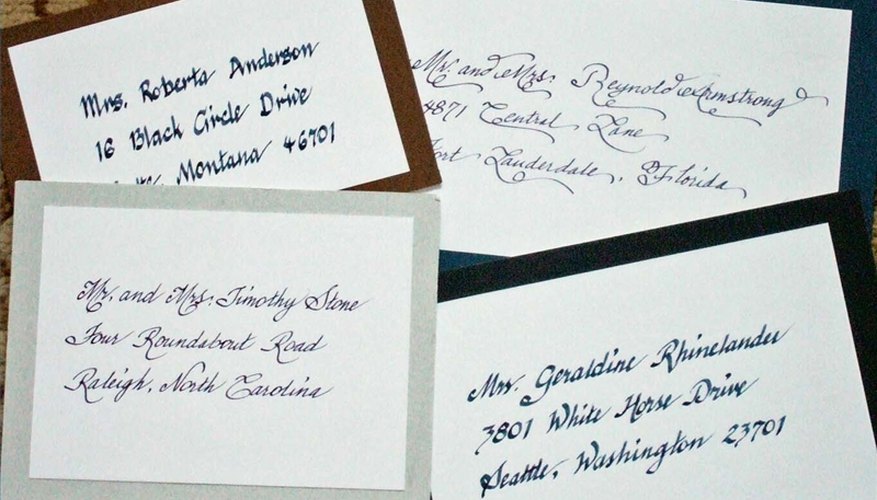 Mrs. Roberta Anderson
16 Black Circle Drive
Montana 46701
Mr. and Mrs. Reynold Armstrong
4871 Central Lane
Fort Lauderdale, Florida
Mr. and Mrs. Timothy Stone
Four Roundabout Road
Raleigh, North Carolina
Mrs. Geraldine Rhinelander
3801 White Horse Drive
Seattle, Washington 23701